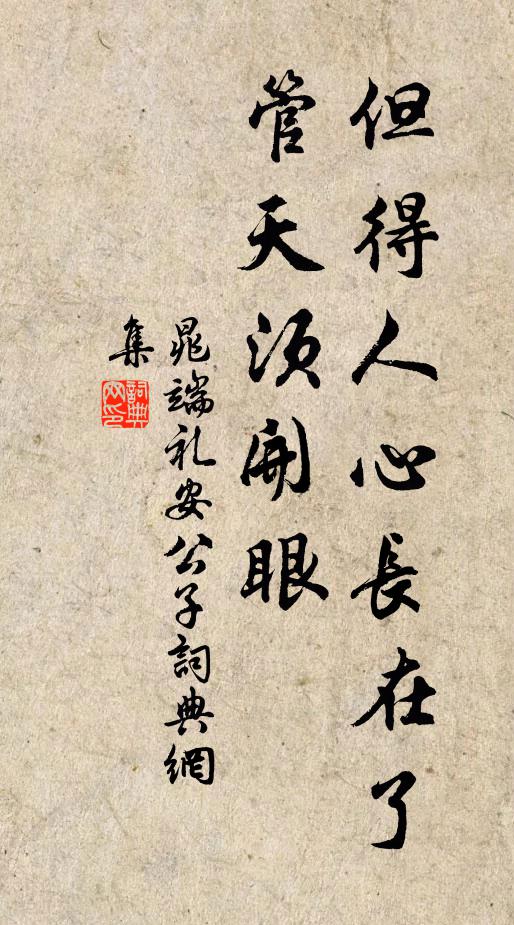 但得人心長在了
管天須開眼
晁端礼安公子詞典網
集
詞典
网印